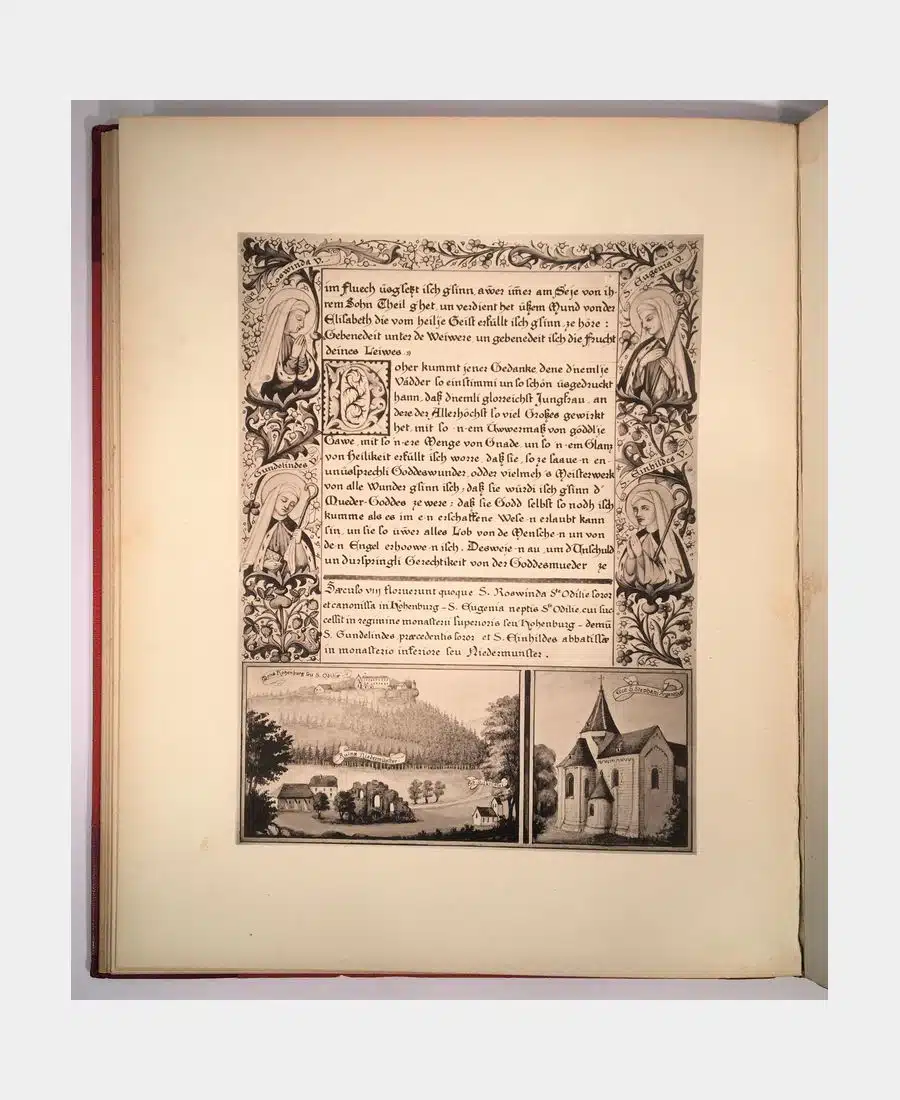 S. Roswinda V.
S. Eugenia V.
S. Gundelindes V.
S. Einhildes V.
im Fluech üsgsetzt isch gsinn, awer im̄er am Seje von ih-
rem Sohn Theil g'het, un verdient het üßem Mund von der
Elisabeth die vom heilje Geist erfüllt isch gsinn, ze höre :
Gebenedeit unter de Weiwere, un gebenedeit isch die Frucht
deines Leiwes »
Doher kummt jener Gedanke, dene d'nemlje
Vädder so einstimmi un so schön üsgedruckt
hann, daß d'nemli glorreichst Jungfrau, an
dere der Allerhöchst so viel Großes gewirkt
het, mit so-n-em Üwwermaß von göddlje
Gawe, mit so n-ere Menge von Gnade, un so-n-em Glanz
von Heilikeit erfüllt isch worre, daß sie, so ze saaue-n en-
unüssprechli Goddeswunder, odder vielmeh 's Meisterwerk
von alle Wunder gsinn isch; daß sie würdi isch gsinn d'
Mueder-Goddes ze were; daß sie Godd selbst so nodh isch
kumme als es im e-n erschaffene Wese-n erlaubt kann
sin, un sie so üwer alles Lob von de Mensche-n un von
de-n Engel erhoowe-n isch. Desweje-n au, um d'Unschuld
un d'ursprüngli Gerechtikeit von der Goddesmueder ze
Sæculo VIII floruerunt quoque S. Roswinda Stæ Odiliæ soror
et canonissa in Hohenburg – S. Eugenia neptis Stæ Odiliæ, cui suc-
cessit in regimine monasterii superioris seu Hohenburg – demū
S. Gundelindes præcedentis soror et S. Einhildes abbatissæ
in monasterio inferiore seu Niedermunster.
Hohenburg seu S. Odiliæ
Ruinæ Niedermünster
S. Stephani